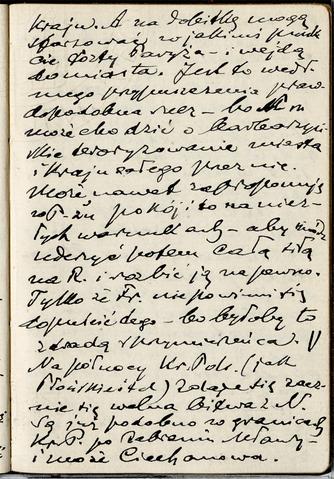 Krajw. A na dobitkę mogą
sforsować w jakimś punk
cie forty Paryża – i wejdą
do miasta. Jest to wedł.
mego przypuszczenia praw-
dopodobna rzecz – bo N-m
może chodzić o barbarzyń
skie terroryzowanie miasta
i kraju całego przez nie.
Może nawet zaproponują
pokój: to na niez-
łych warunkach – aby
uderzyć potem całą siłą
na R. i rozbić ją na pewno.
Tylko że Fr. nie powinni się
dopuścić tego – bo byłoby to
zdradą sprzymierzeńca. ||
Na północy Kr. Pols. (jak
Płońskie itd) zdaje się zacz-
nie się walna bitwa z N.
Są już podobno w granicach
Kr. P. po zabraniu Mławy
i może Ciechanowa.